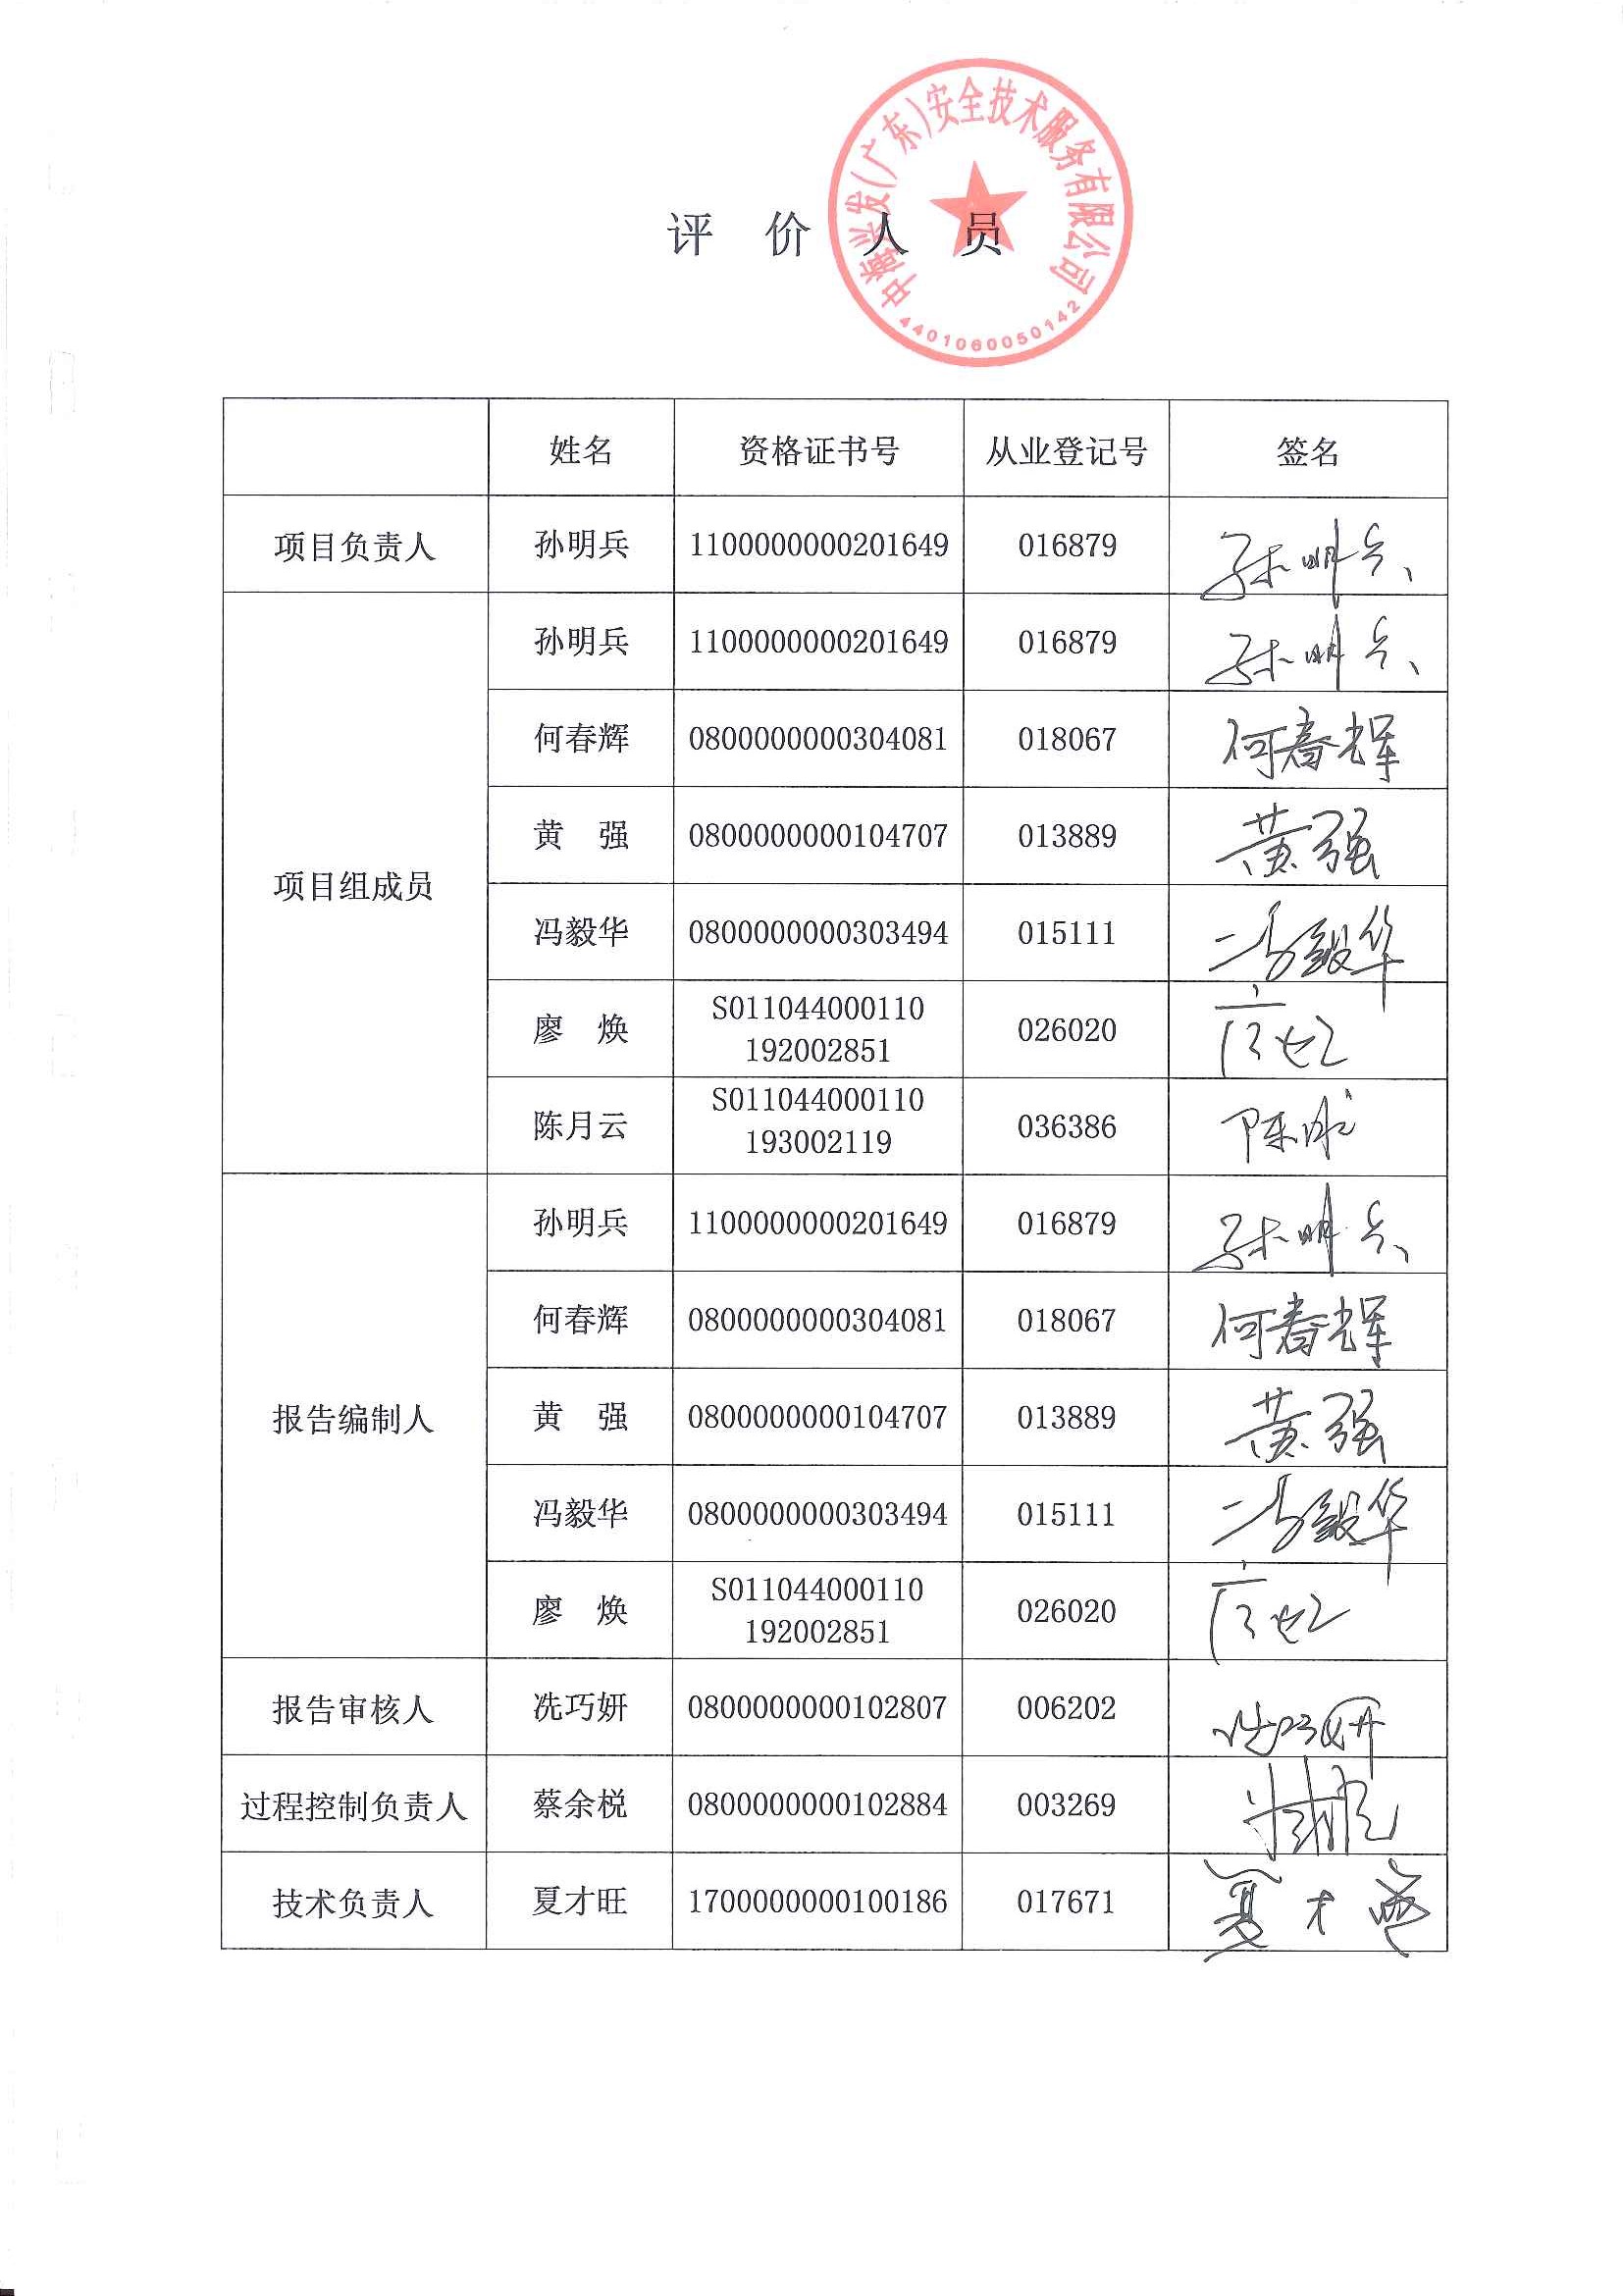 中海兴发(广东)安全技术服务有限公司
4401060050142
评 价 人 员
姓名 资格证书号 从业登记号 签名
项目负责人 孙明兵 1100000000201649 016879 孙明兵
项目组成员
孙明兵 1100000000201649 016879 孙明兵
何春辉 0800000000304081 018067 何春辉
黄 强 0800000000104707 013889 黄强
冯毅华 0800000000303494 015111 冯毅华
廖 焕 S011044000110 026020 廖焕
192002851
陈月云 S011044000110 036386 陈月云
193002119
报告编制人
孙明兵 1100000000201649 016879 孙明兵
何春辉 0800000000304081 018067 何春辉
黄 强 0800000000104707 013889 黄强
冯毅华 0800000000303494 015111 冯毅华
廖 焕 S011044000110 026020 廖焕
192002851
报告审核人 冼巧妍 0800000000102807 006202 冼巧妍
过程控制负责人 蔡余棁 0800000000102884 003269
技术负责人 夏才旺 1700000000100186 017671 夏才旺